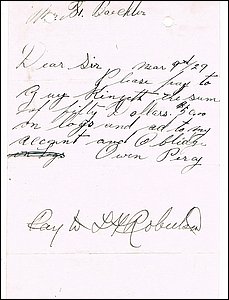 Mr. B. Baechler
Dear Sir Mar 9th/29
Please pay to
Guy the sum
of fifty Dollars. $50.00
on logs and ad to my
account and Oblidge
on logs Owen Percy
Pay to D H Robertson